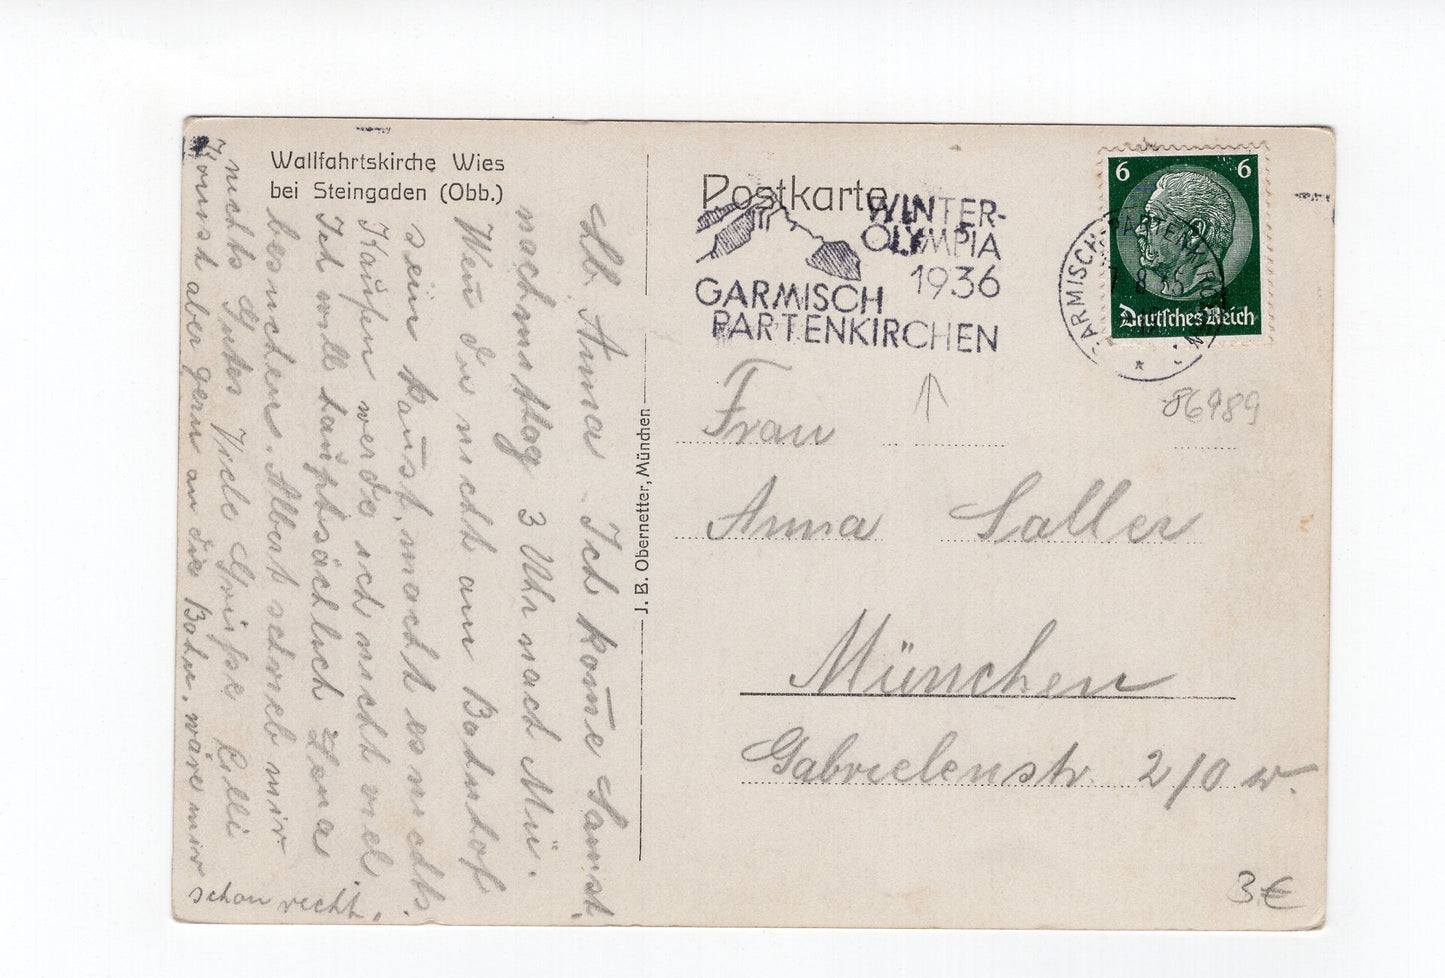 Wallfahrtskirche Wies
bei Steingaden (Obb.)
Lb. Anna Ich kom̄e Samst.
nachmittag 3 Uhr nach Mü.
Wen̄ du nicht am Bahnhof
sein kan̄st, macht es nichts.
Kaufen werde ich nicht viel.
Ich will hauptsächlich Lena
besuchen. Albert schrieb mir
nichts Gutes Viele Grüße Cilli
Kom̄st aber gern an die Bahn, wäre mir
schon recht.
J. B. Obernetter, München
Postkarte
WINTER-
OLYMPIA
1936
GARMISCH
PARTENKIRCHEN
6 6
Deutsches Reich
GARMISCH-PARTENKIRCHEN
7.8.35
86989
Frau
Anna Saller
München
Gabrielenstr. 2/0 w.
3 €